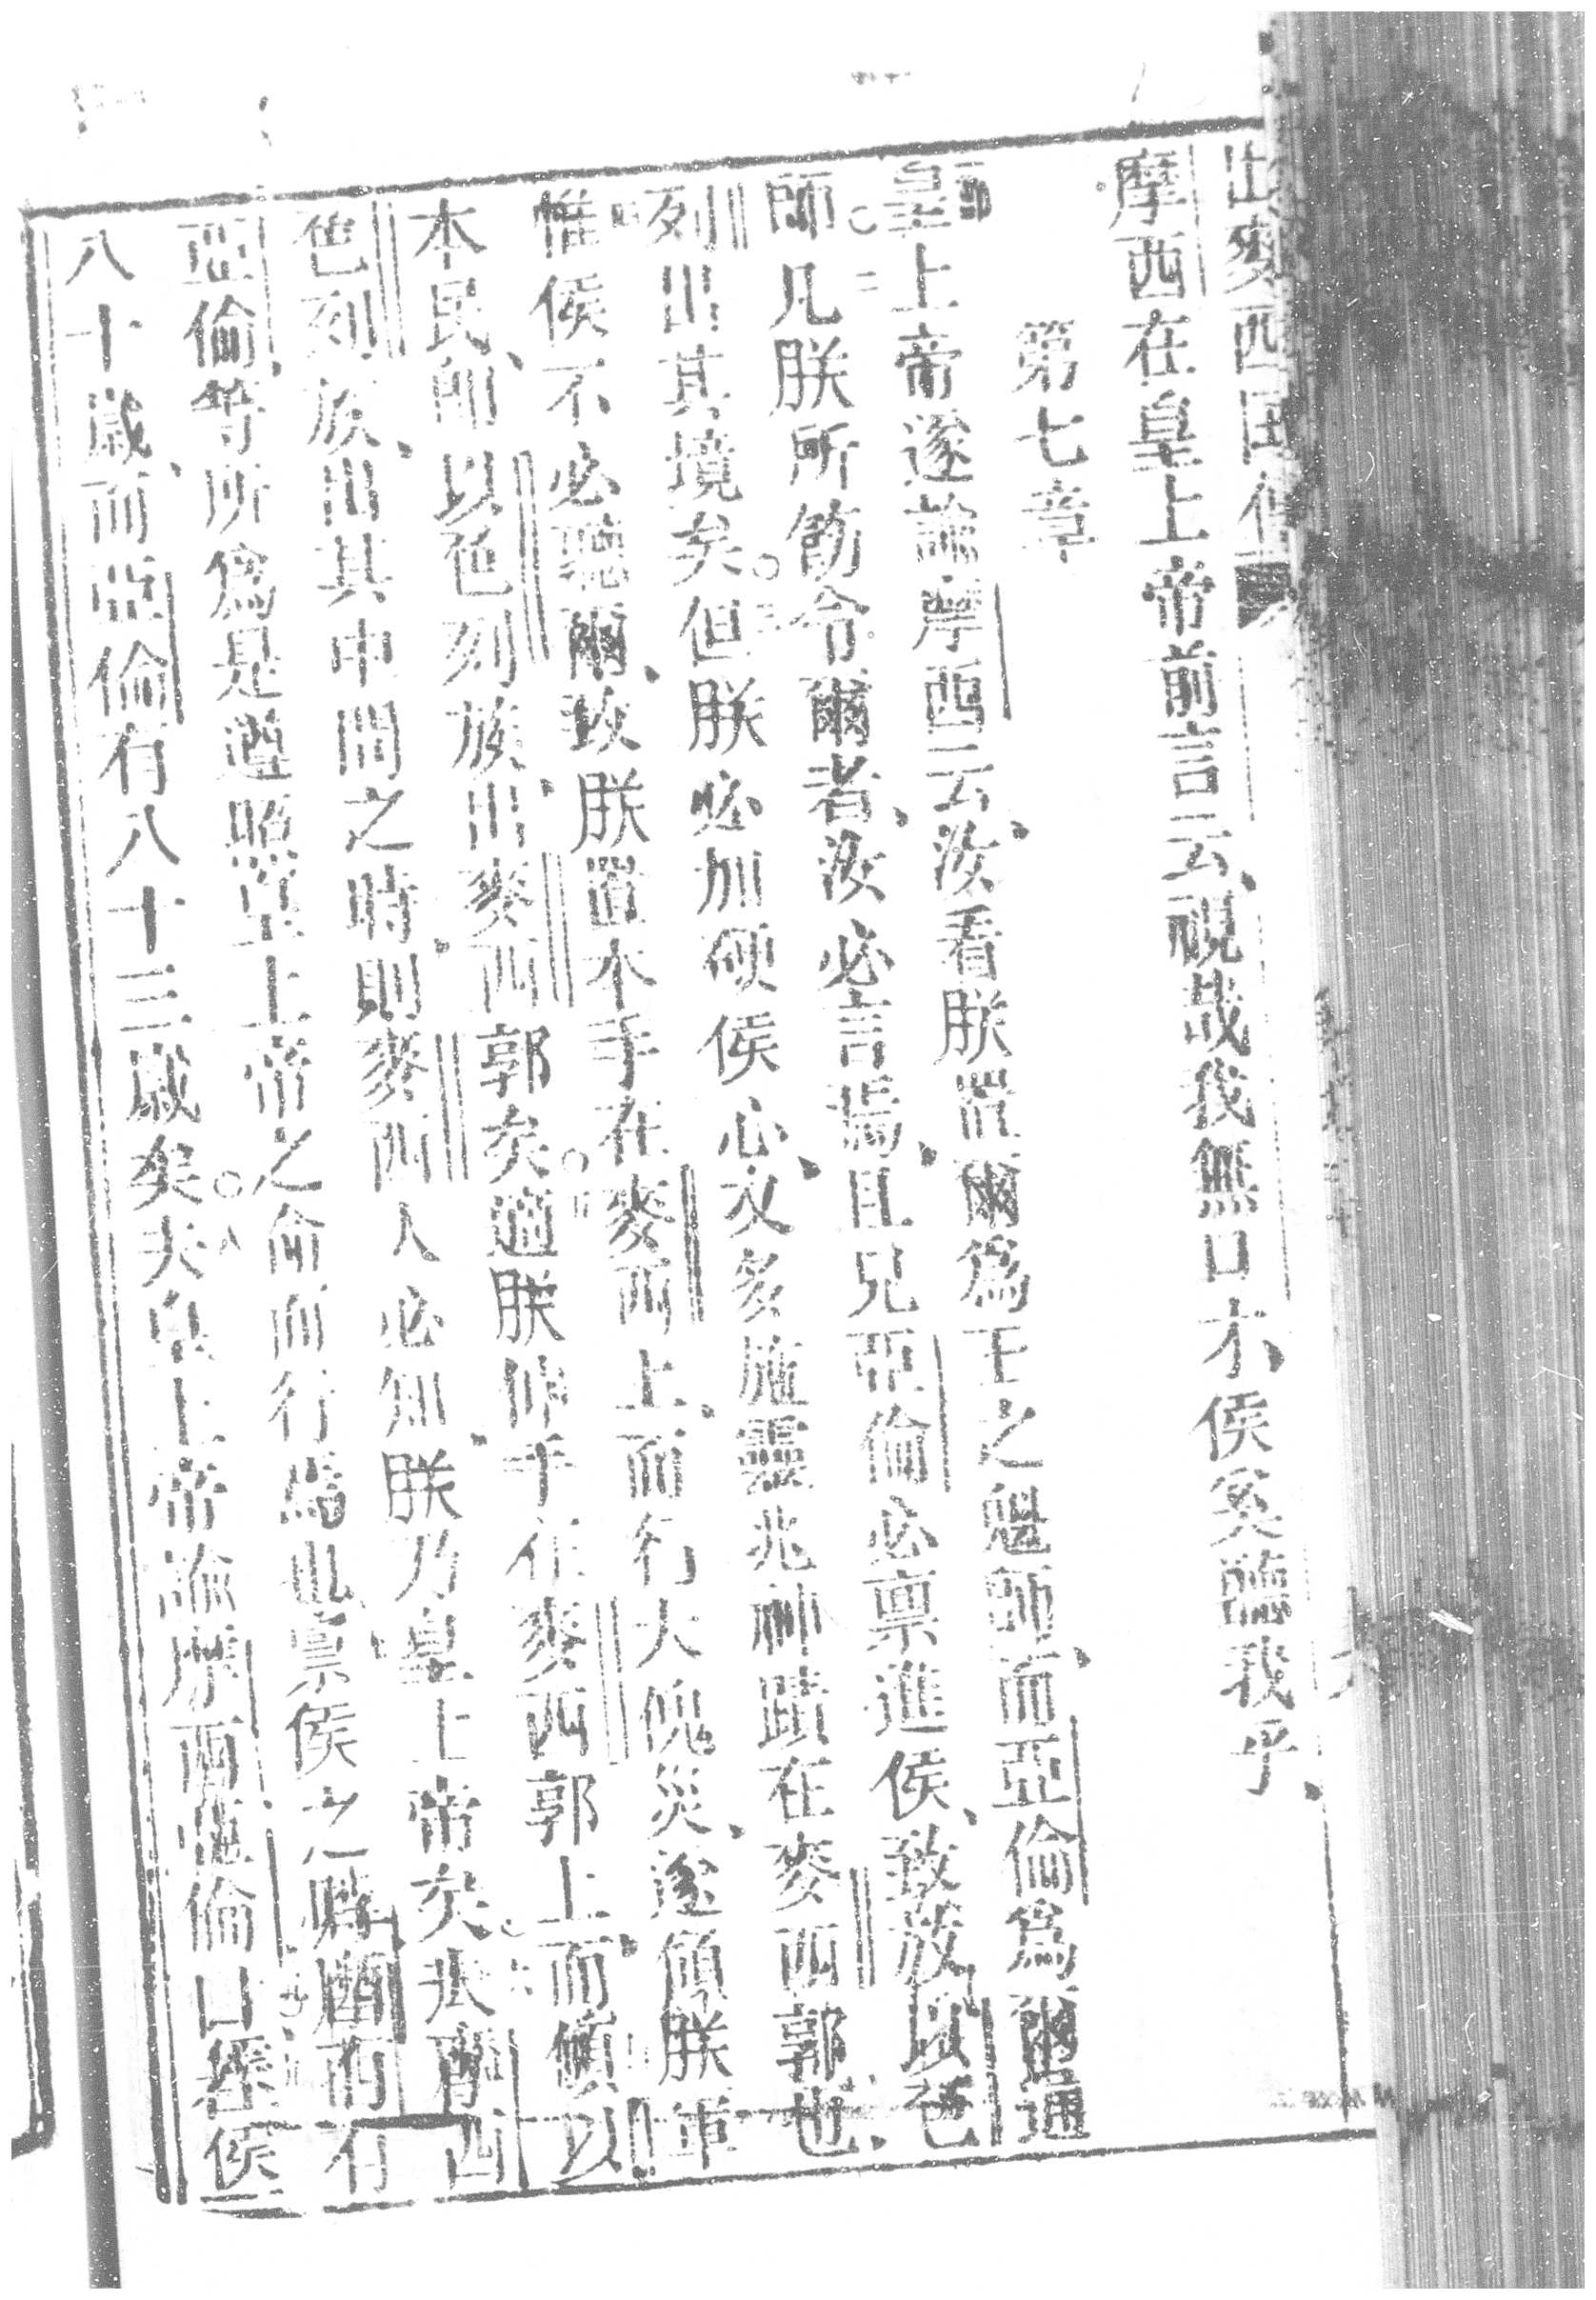 出麥西国傳
摩西在皇上帝前言云、視哉我無口才、侯奚聽我乎、
第七章
皇上帝遂諭摩西云、汝看朕置爾爲王之魁師、而亞倫爲爾通
師○二凡朕所飭令爾者、汝必言焉、且兄亞倫必禀進侯、致放以色
列出其境矣○三但朕必加硬侯心、又多施靈兆神蹟在麥西郭也、
惟侯不必聽爾、致朕置本手在麥西上、而行大傀災、遂傾朕軍
本民、卽以色列族、出麥西郭矣○五適朕伸手在麥西郭上、而傾以
色列族、出其中間之時、則麥西人必知朕乃皇上帝矣○六于摩西
亞倫等所爲、是遵照皇上帝之諭而行焉 禀侯之際、摩西有
八十歲、而亞倫有八十三歲矣○八夫皇上帝諭摩西亞倫曰、若侯